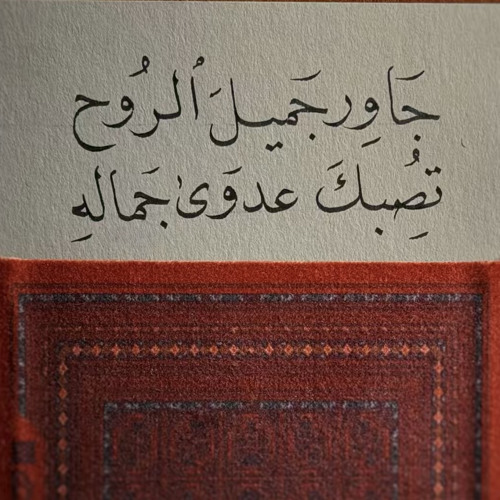 جَاوِر جَميلَ ٱلرُوح
تصُِبكَ عدوَىٰ جَمالهِ